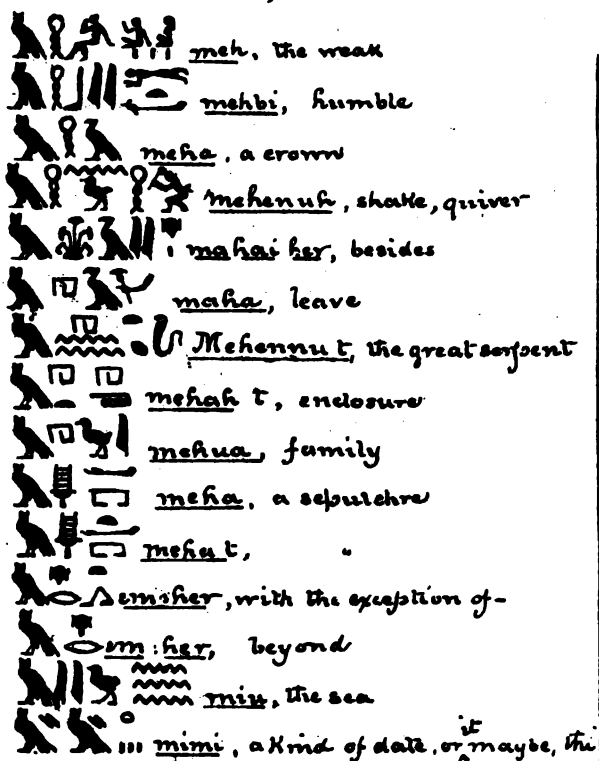 meh, the weak
mehbi, humble
meha, a crown
mehenuh, shake, quiver
mahai her, besides
maha, leave
Mehennu t, the great serpent
mehah t, enclosure
mehua, family
meha, a sepulchre
meha t, "
em : her, with the exception of-
em : her, beyond
miu, the sea
mimi, a kind of date, or it maybe, thi